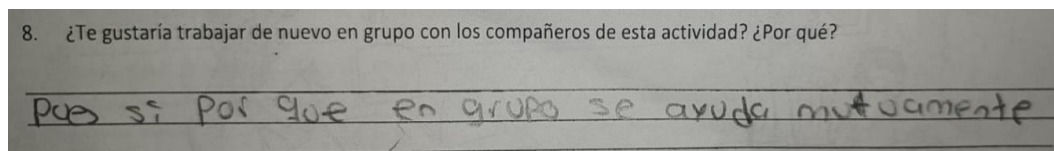 8. ¿Te gustaría trabajar de nuevo en grupo con los compañeros de esta actividad? ¿Por qué?
pues si por que en grupo se ayuda mutuamente